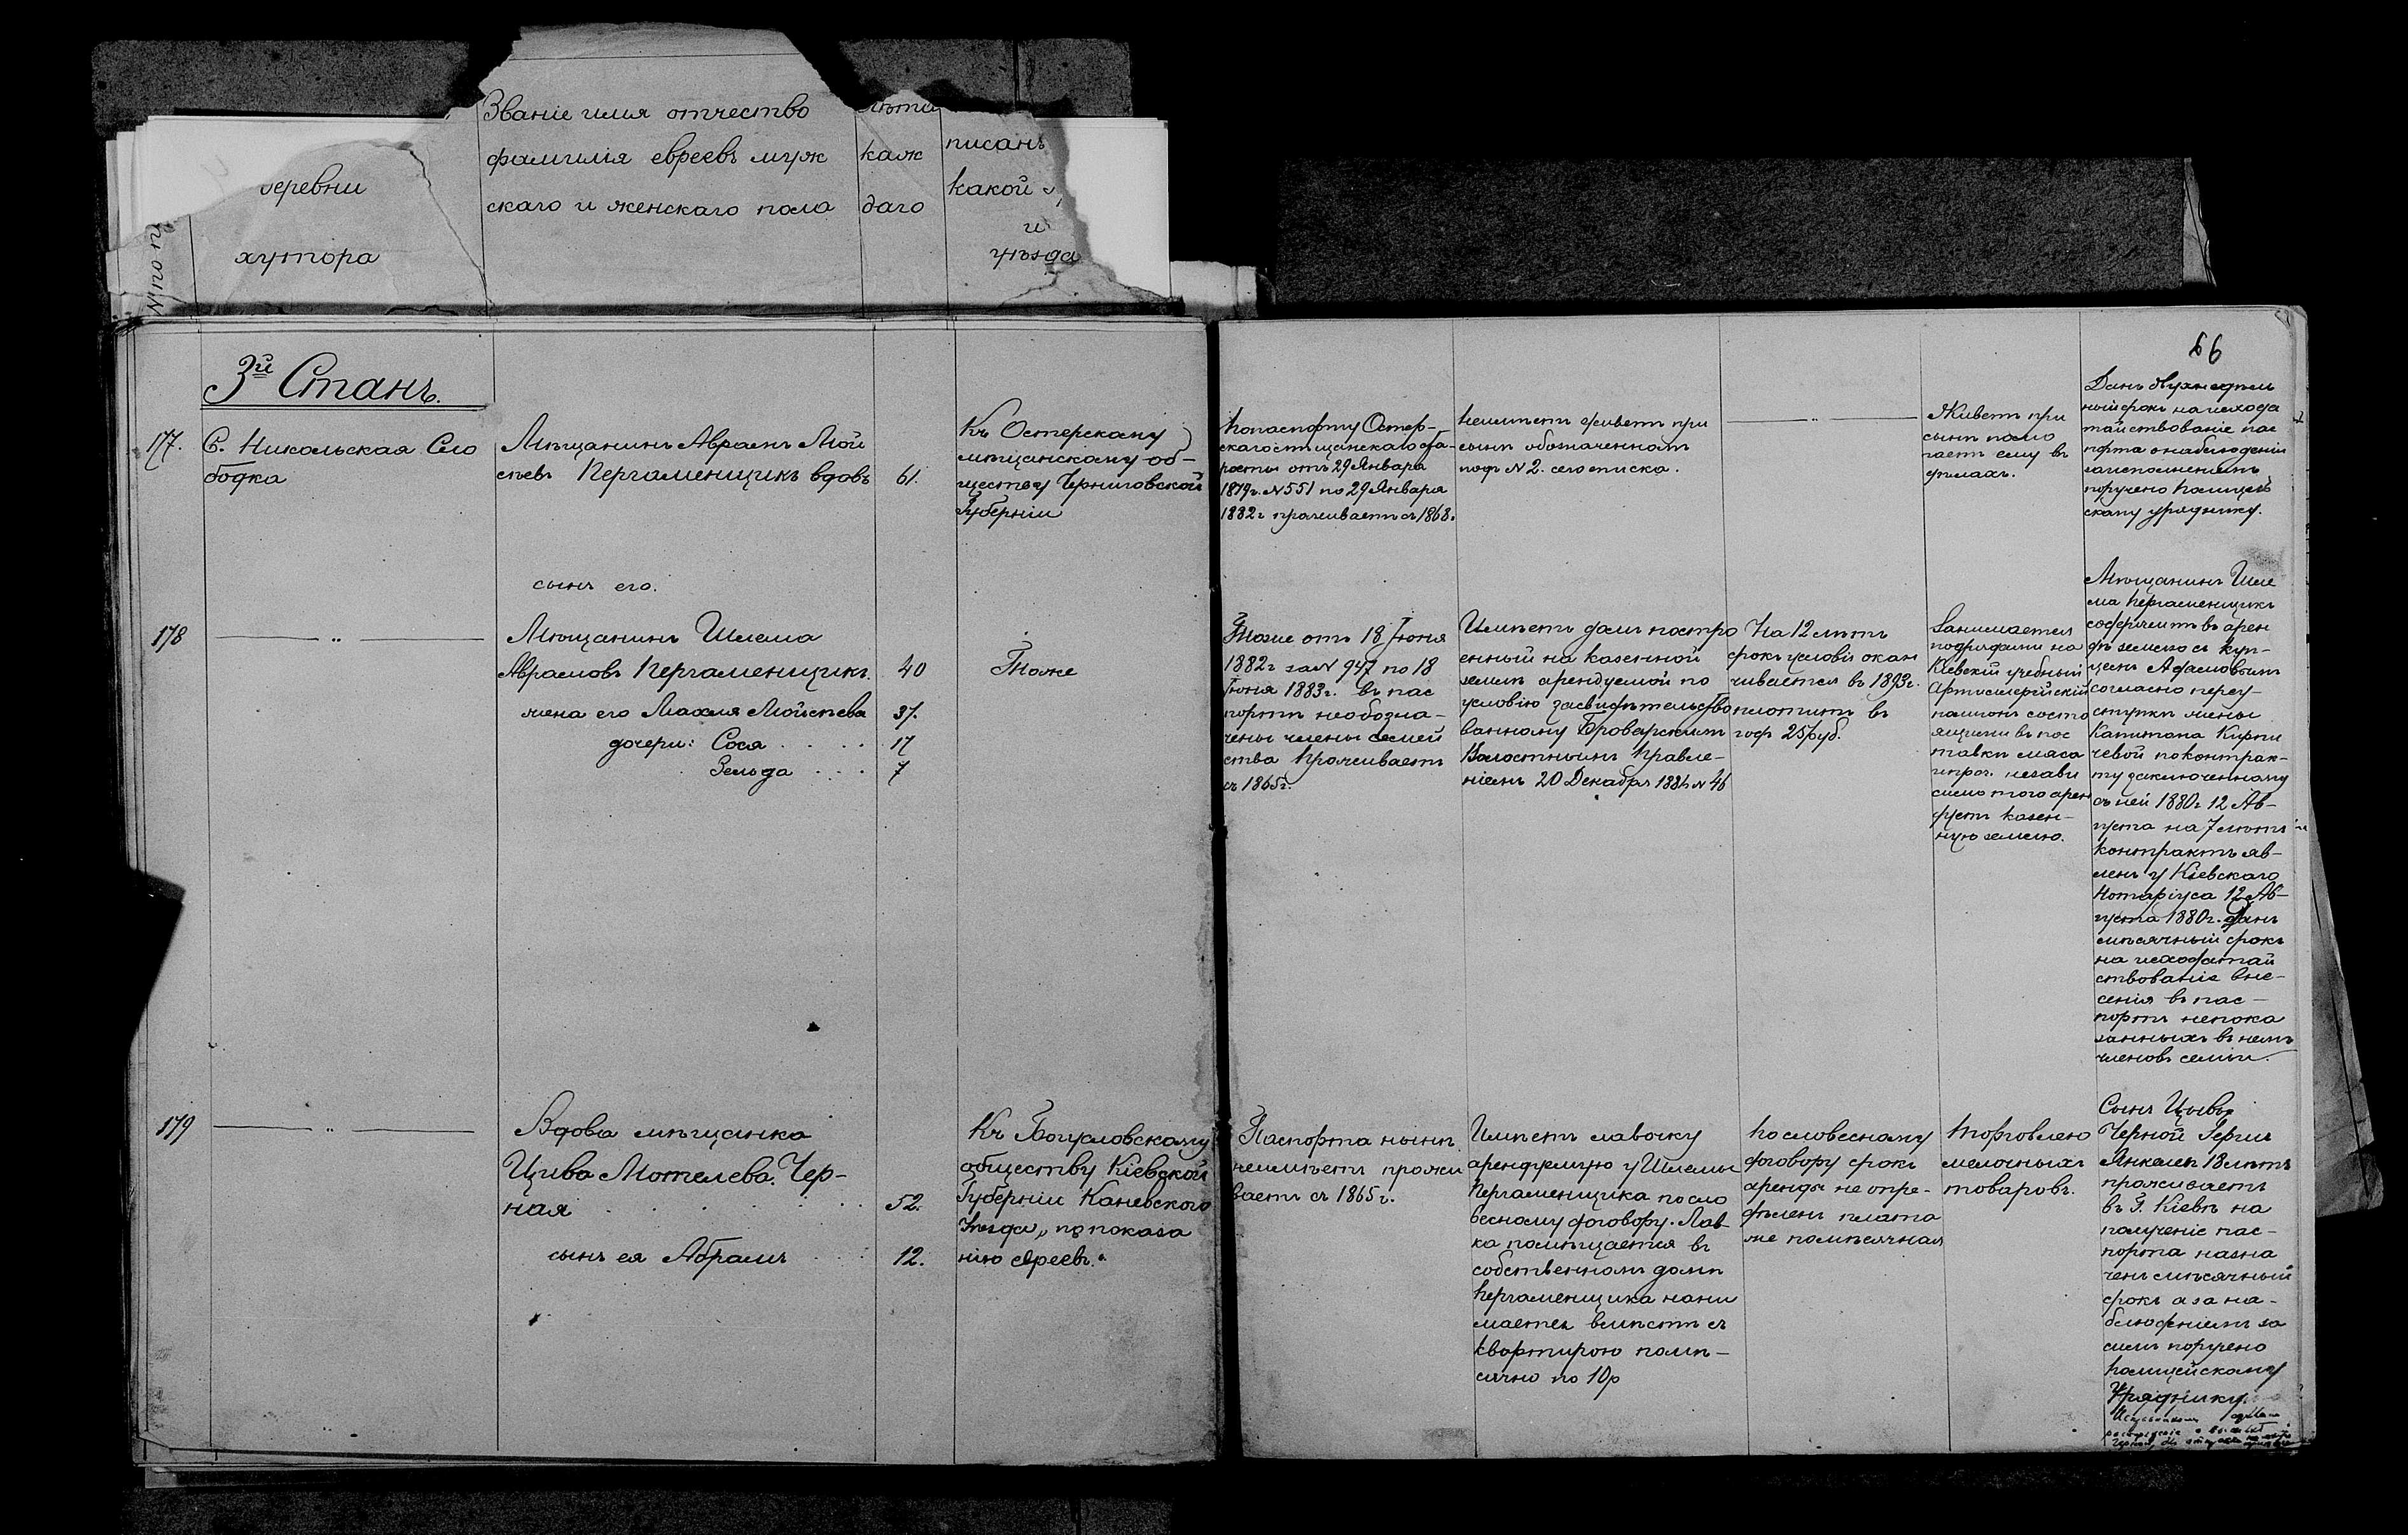 Званіе имя отчество
фамилія евреевъ муж
скаго и женскаго пола
лѣта
каж
даго
писанъ
какой
и
уѣзда
деревни
хутора
66
3й Станъ.
177.
С. Никольская Сло
бодка
Мѣщанинъ Авраамъ Мой
сѣевъ Пергаменщикъ вдовъ
61.
Къ Остерскому
мѣщанскому об-
ществу Черниговской
Губерніи
По паспорту Остер-
скаго мѣщанскаго ста-
росты отъ 29 Января
1879г. № 551 по 29 Января
1882г проживаетъ съ 1868г
Неимѣетъ живетъ при
сынѣ обозначенномъ
подъ № 2. сего списка.
— " —
Живетъ при
сынѣ помо
гаетъ ему въ
дѣлахъ.
Данъ двухнедѣль
ный срокъ на исхода
тайствованіе пас
порта о наблюденіи
за исполненіемъ
поручено Полицей
скому уряднику.
178
— " —
сынъ его.
Мѣщанинъ Шлема
Абрамовъ Пергаменщикъ.
40
жена его Махля Мойсѣева
37.
дочери: Сося . . . .
17
Зельда . . . .
7
Тоже
Тоже отъ 18 Іюня
1882г за № 947 по 18
Іюня 1883г. въ пас
портѣ необозна-
чены члены семей
ства проживаетъ
съ 1865г.
Имѣетъ домъ постро
енный на казенной
землѣ арендуемой по
условію засвидѣтельство
ванному Броварскимъ
Волостнымъ Правле-
ніемъ 20 Декабря 1881 № 46
На 12 лѣтъ
срокъ условія окан
чивается въ 1893г.
платитъ въ
годъ 25 руб.
Занимается
подрядами на
Кіевскій учебный
Артиллерійскій
полигонъ состо
ящими въ пос
тавкѣ мяса
и проч. незави
симо того арен
дуетъ казен-
ную землю.
Мѣщанинъ Шле
ма Пергаменщикъ
содержитъ въ арен
дѣ землю съ куп-
цемъ Адамовымъ
согласно переу-
ступкѣ жены
Капитана Кирпи
чевой по контрак-
ту заключенному
съ ней 1880г 12 Ав-
густа на 7 лѣтъ
контрактъ яв-
ленъ у Кіевскаго
Нотаріуса 12 Ав-
густа 1880г. Данъ
мѣсячный срокъ
на исходатай
ствованіе вне-
сенія въ пас-
портъ непока
занныхъ въ немъ
членовъ семьи.
179
— " —
Вдова мѣщанка
Цива Мотелева Чер-
ная . . . . . . .
52.
сынъ ея Абрамъ . . .
12.
Къ Богуславскому
обществу Кіевской
Губерніи Каневского
Уѣзда, по показа
нію евреевъ.
Паспорта нынѣ
неимѣетъ прожи
ваетъ съ 1865г.
Имѣетъ лавочку
арендуемую у Шлемы
Пергаменщика по сло
весному договору. Лав
ка помѣщается въ
собственномъ домѣ
Пергаменщика нани
мается вмѣстѣ съ
квартирою помѣ-
сячно по 10р
По словесному
договору срокъ
аренды не опре-
дѣленъ плата
же помѣсячная
Торговлею
мелочныхъ
товаровъ.
Сынъ Цивы
Черной Гершъ
Янкель 18 лѣтъ
проживаетъ
въ г. Кіевѣ на
полученіе пас-
порта назна
ченъ мѣсячный
срокъ а за на-
блюденіемъ за
симъ поручено
Полицейскому
Уряднику.